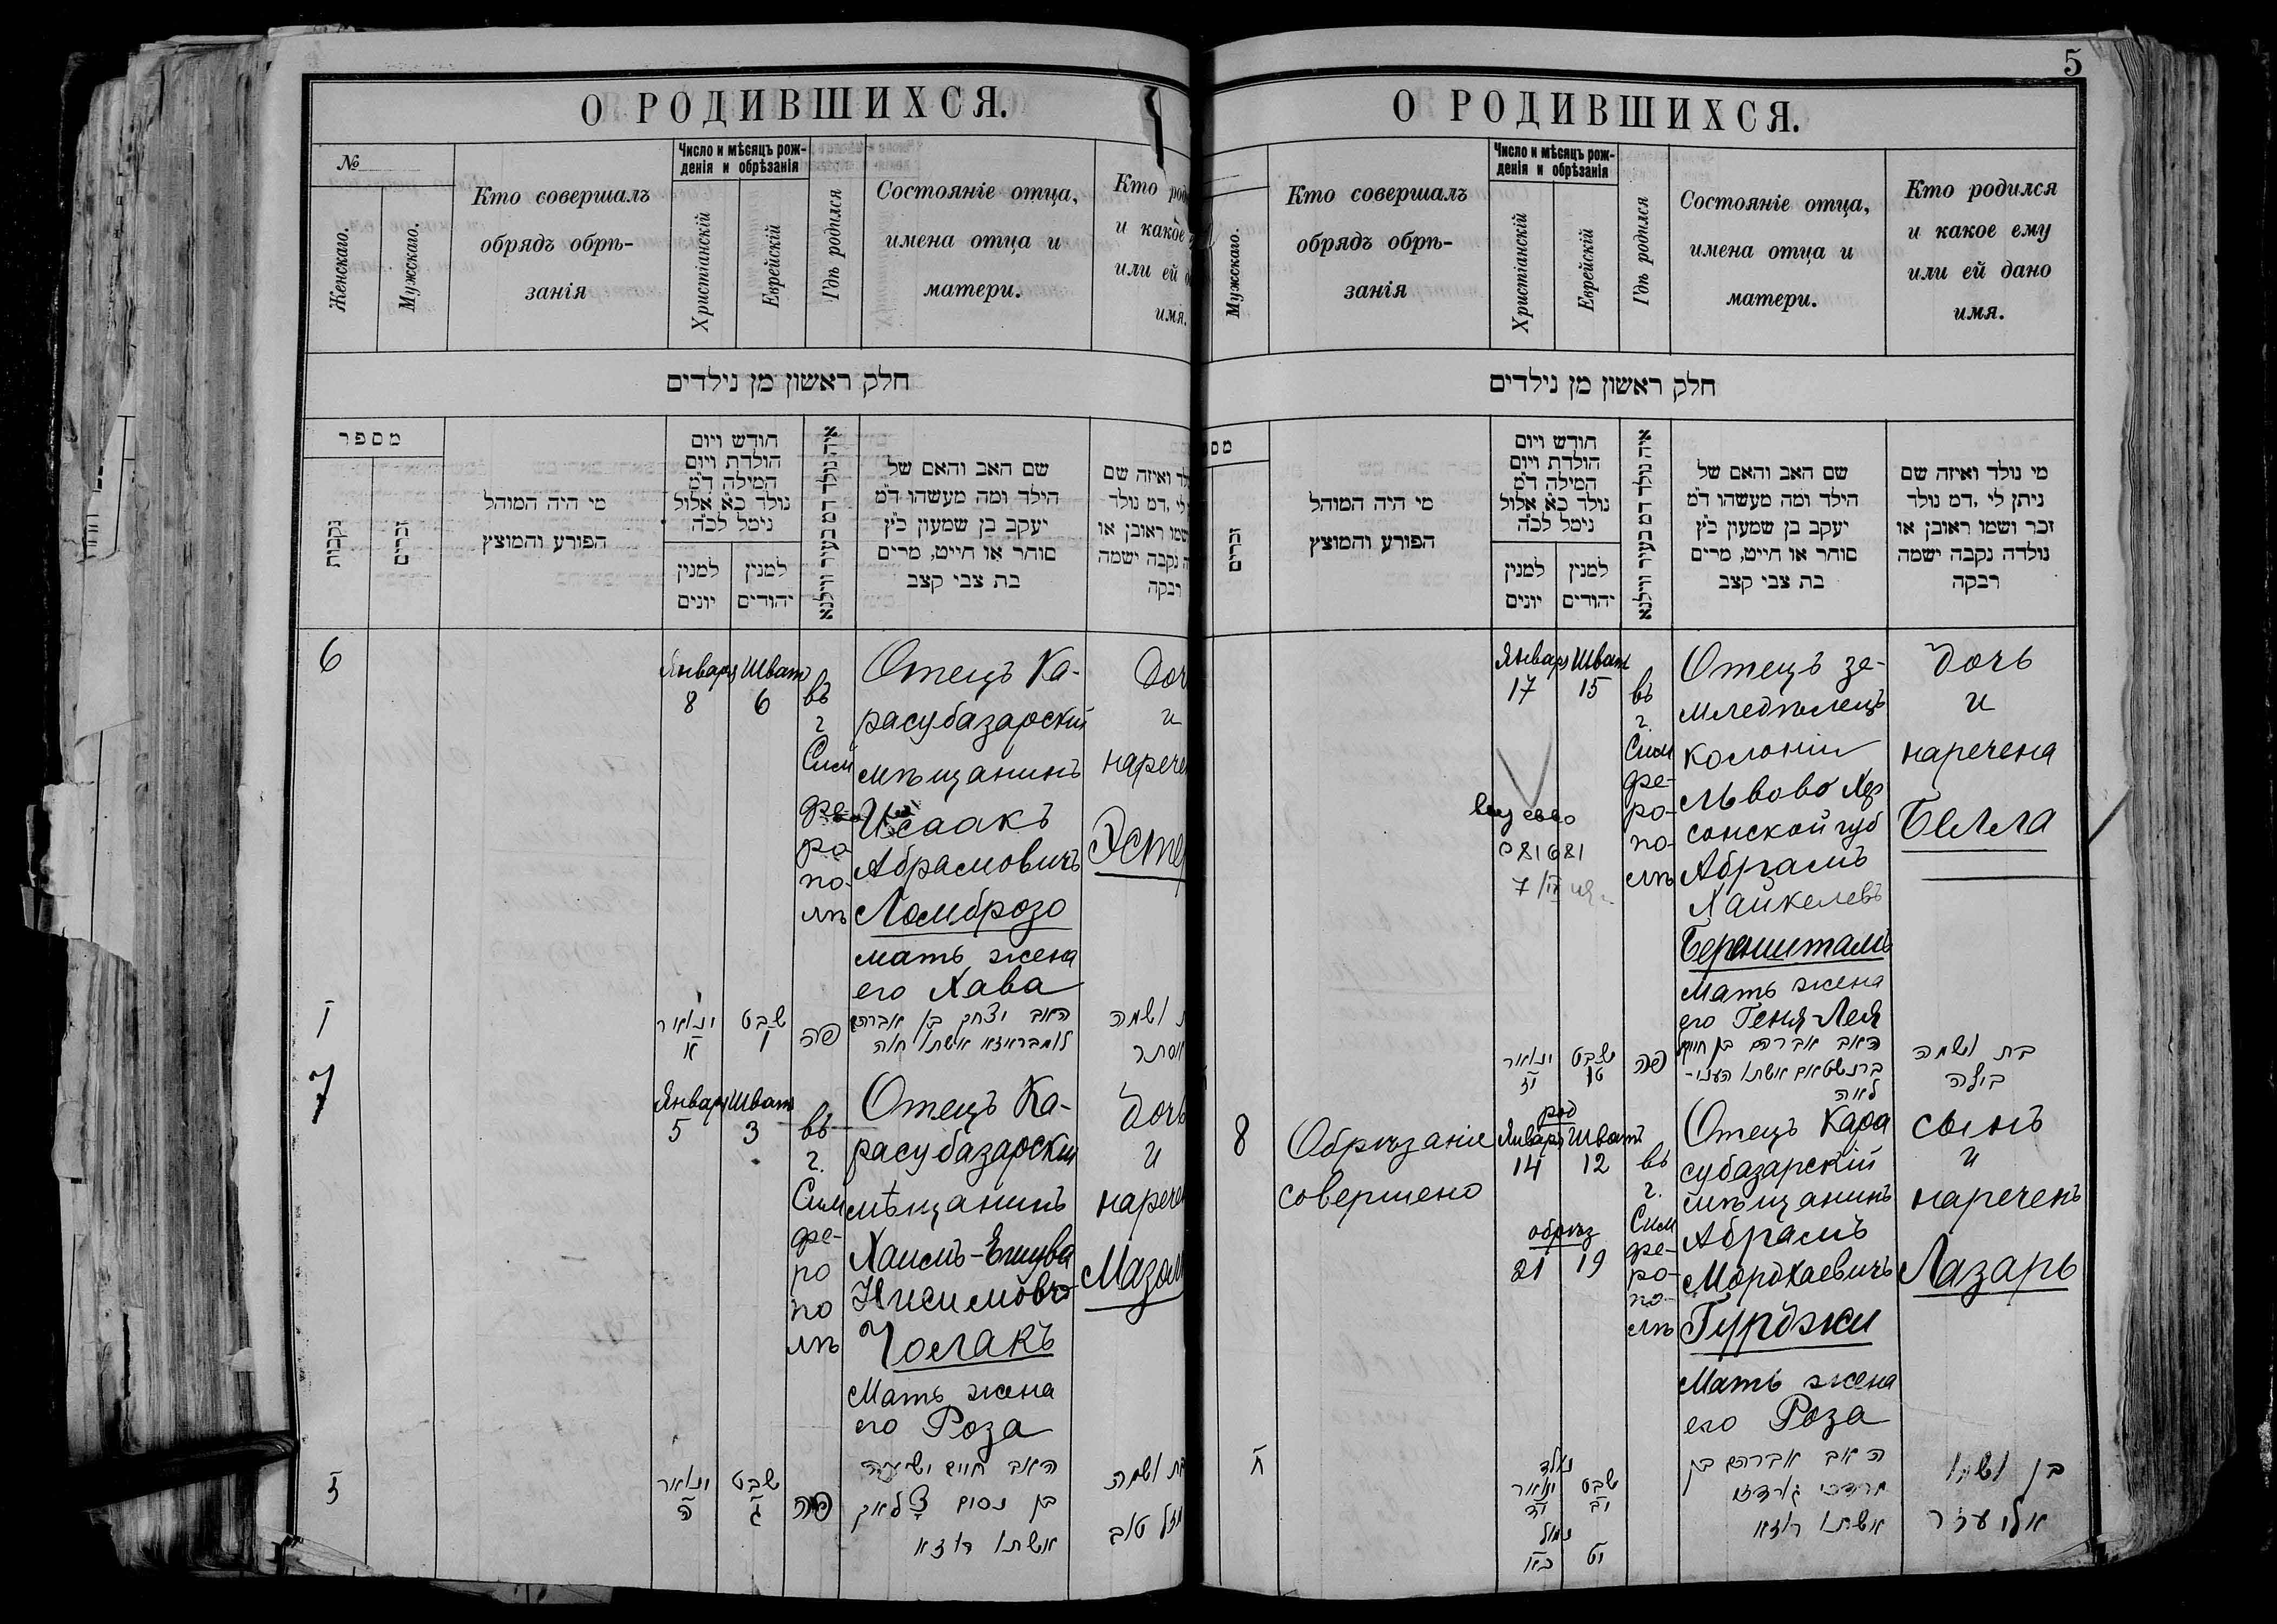 О РОДИВШИХСЯ.
№
Женскаго.
Мужскаго.
Кто совершалъ
обрядъ обрѣ-
занія
Число и мѣсяцъ рож-
денія и обрѣзанія
Христіанскій
Еврейскій
Гдѣ родился
Состояніе отца,
имена отца и
матери.
Кто
и какое
или ей
имя.
חלק ראשון מן נילדים
מספר
נקבות
זכרים
מי היה המוהל
הפורע והמוצץ
חודש ויום
הולדת ויום
המילה ד״מ
נולד כ״א אלול
נימל לכ״ה
למנין
יונים
למנין
יהודים
איה נולד דמ בעיר ווילנא
שם האב והאם של
הילד ומה מעשהו ד״מ
יעקב בן שמעון כ״ץ
סוחר או חייט, מרים
בת צבי קצב
ואיזה שם
לי, דמ נולד
ושמו ראובן או
נקבה ישמה
רבקה
6
Январ Шват
8 6
въ
г
Сим
фе-
ро
по-
лѣ
Отецъ Ка-
расубазарскій
мѣщанинъ
Исаакъ
Абрамовичъ
Ломброзо
мать жена
его Хава
Доч
и
нарече
Эсте
ינואר
שבט
פה
האב יצחק בן אברהם
לומברוזא אשתו חוה
ושמה
אסתר
7
Январ Шват
5 3
въ
г.
Сим
фе-
ро
по
лѣ
Отецъ Ка-
расубазарскій
мѣщанинъ
Хаимъ-Ешува
Нисимовъ
Чолакъ
Мать жена
его Роза
Дочь
и
нарече
Мазол
ינואר
ה
שבט
ג
פה
האב חיים ישועה
בן נסים צולאק
אשתו רוזא
בת ושמה
מזל טוב
5
О РОДИВШИХСЯ.
Мужскаго.
Кто совершалъ
обрядъ обрѣ-
занія
Число и мѣсяцъ рож-
денія и обрѣзанія
Христіанскій
Еврейскій
Гдѣ родился
Состояніе отца,
имена отца и
матери.
Кто родился
и какое ему
или ей дано
имя.
חלק ראשון מן נילדים
מס
זכרים
מי היה המוהל
הפורע והמוצץ
חודש ויום
הולדת ויום
המילה ד״מ
נולד כ״א אלול
נימל לכ״ה
למנין
יונים
למנין
יהודים
איה נולד דמ בעיר ווילנא
שם האב והאם של
הילד ומה מעשהו ד״מ
יעקב בן שמעון כ״ץ
סוחר או חייט, מרים
בת צבי קצב
מי נולד ואיזה שם
ניתן לי, דמ נולד
זכר ושמו ראובן או
נולדה נקבה ישמה
רבקה
Январ Шват
17 15
081681
въ
г.
Сим
фе-
ро-
по-
лѣ
Отецъ зе-
мледѣлецъ
колоніи
Львово Хер
сонской губ
Абрамъ
Хайкелевъ
Бернштамъ
Мать жена
его Геня-Лея
Дочь
и
наречена
Белла
ינואר
יז
שבט
טו
פה
האב אברהם בן חייקל
ברנשטאם אשתו הענו-
לאה
בת ושמה
בילה
8
Обрѣзаніе
совершено
род
Январ Шватъ
14 12
обрѣз
21 19
въ
г.
Сим
фе-
ро-
по-
лѣ
Отецъ Кара
субазарскій
мѣщанинъ
Абрамъ
Мордхаевичъ
Гурджи
Мать жена
его Роза
сынъ
и
нареченъ
Лазарь
ח
נולד
ינואר
יד
שבט
יב
נמול
כא
יט
האב אברהם בן
מרדכי גורדזי
אשתו רוזא
בן ושמו
אליעזר